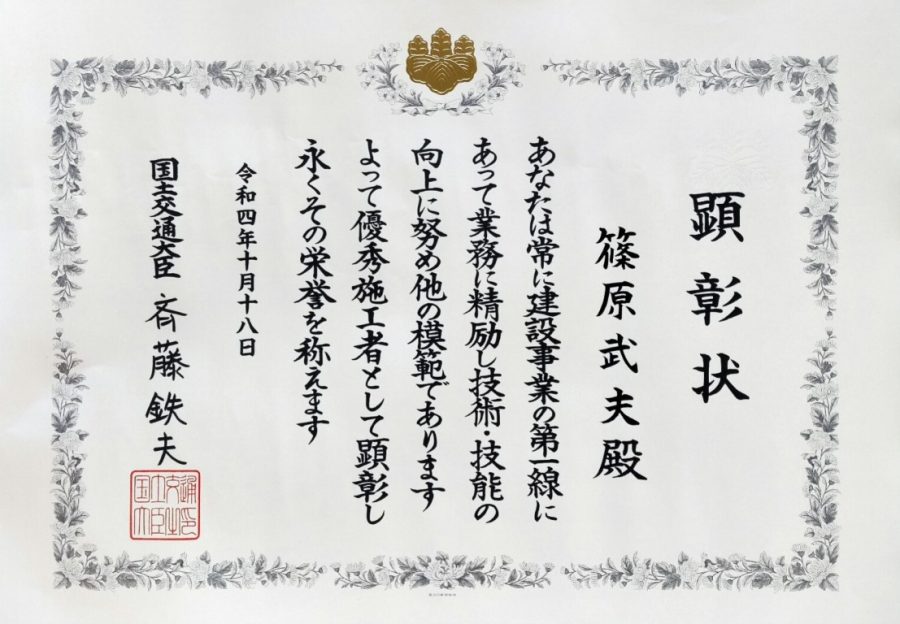 顕彰状
篠原武夫殿
あなたは常に建設事業の第一線に
あって業務に精励し技術・技能の
向上に努め他の模範であります
よって優秀施工者として顕彰し
永くその栄誉を称えます
令和四年十月十八日
国土交通大臣 斉藤鉄夫
国土交通大臣之印